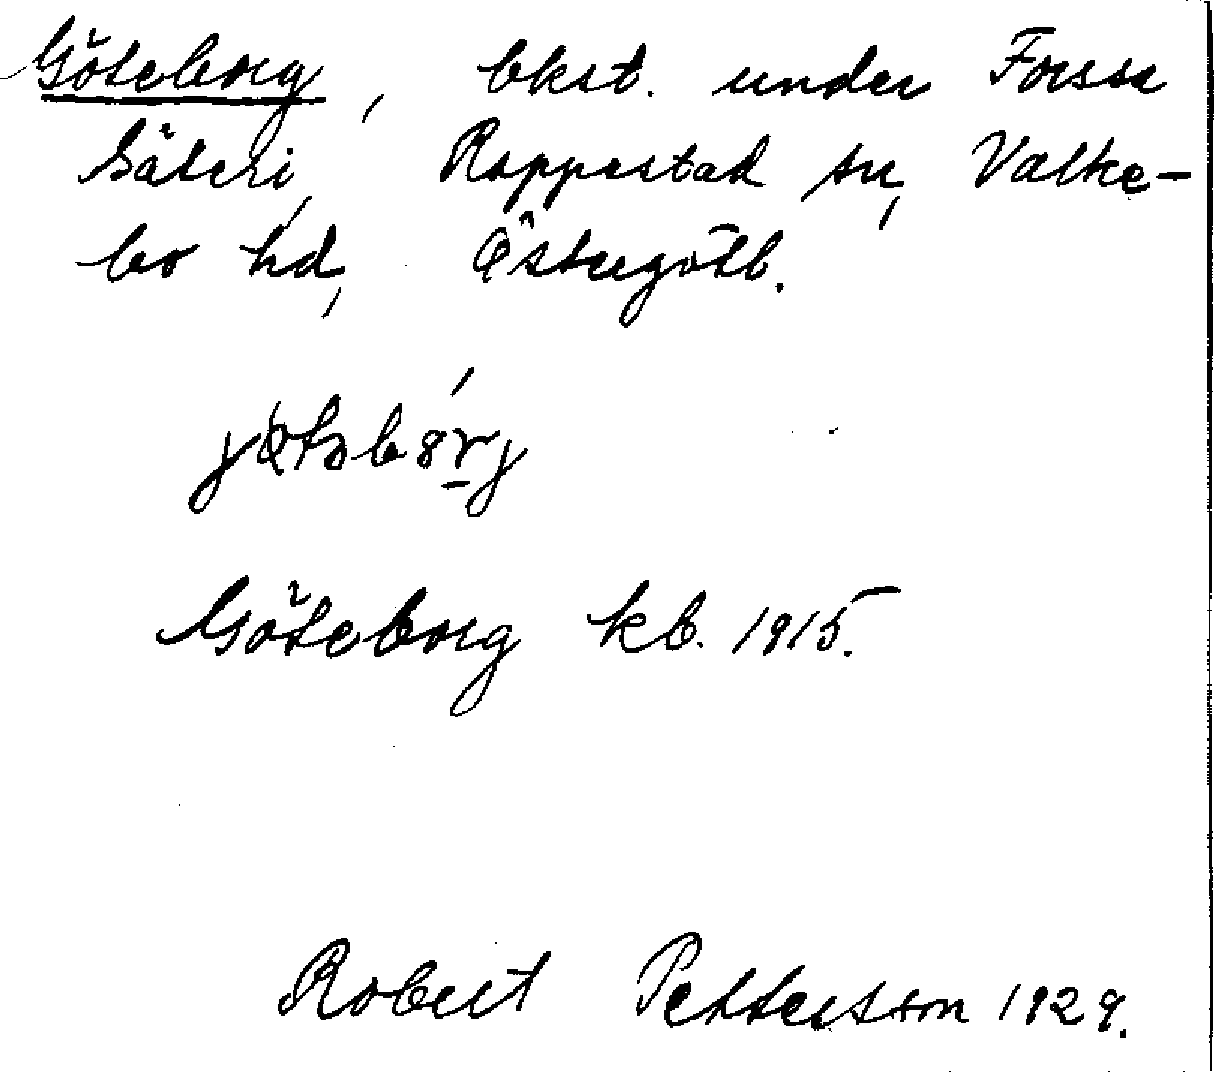 Göteborg, bkst. under Forssa
Säteri, Rappestad sn, Valke-
bo hd, Östergötl.
Göteborg kb. 1915.
Robert Pettersson 1929.